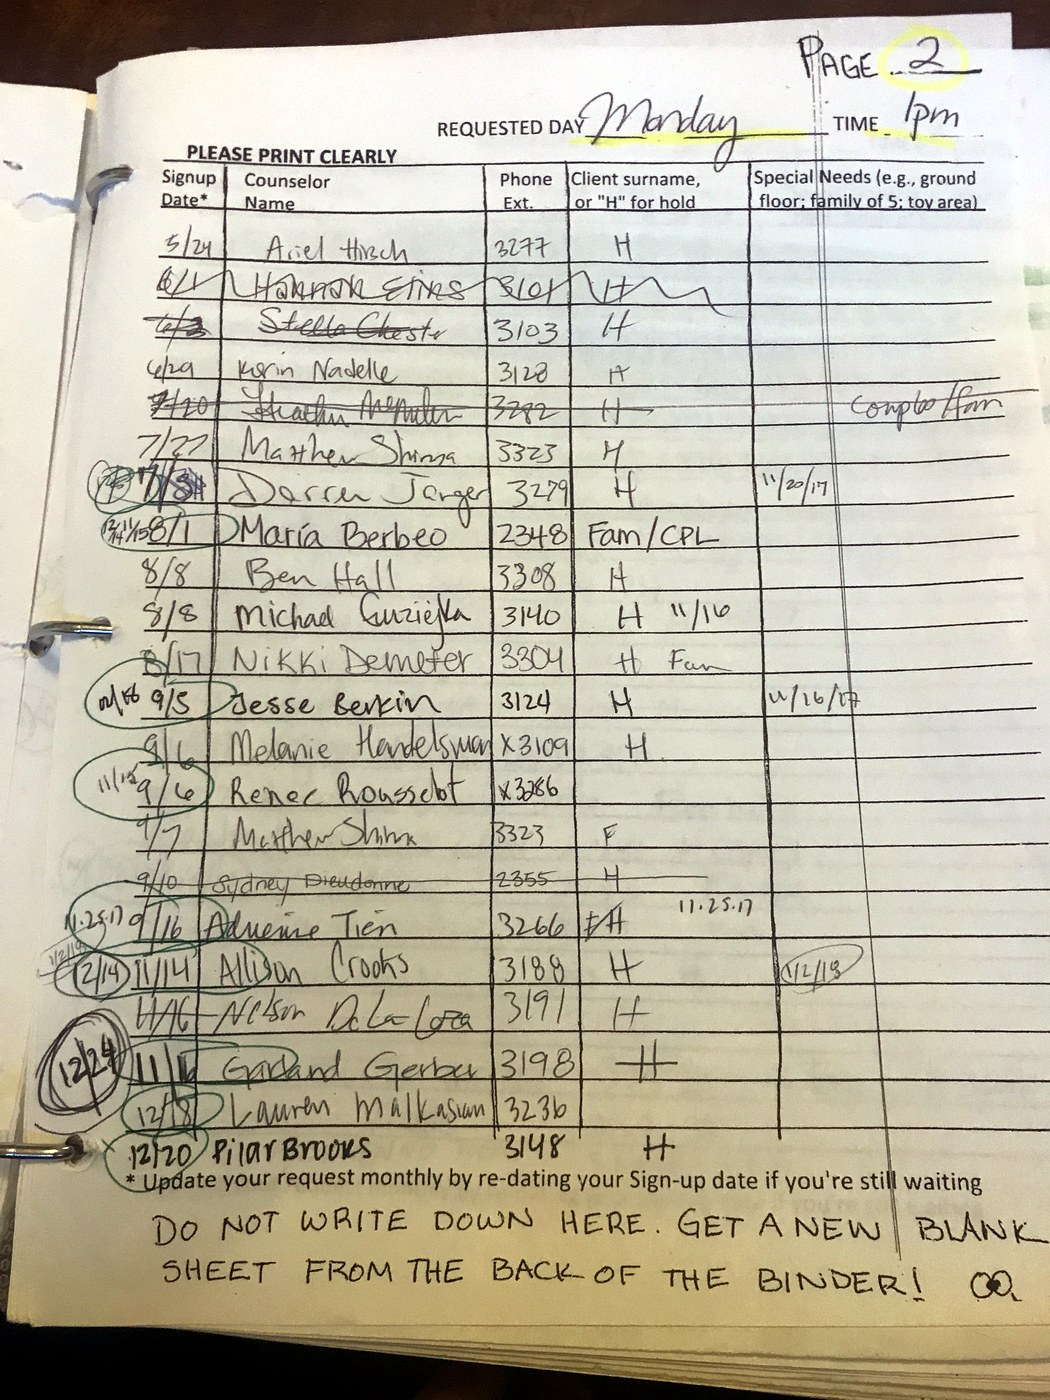 PAGE 2
REQUESTED DAY Monday TIME 1pm
PLEASE PRINT CLEARLY
Signup Date* Counselor Name Phone Ext. Client surname, or "H" for hold Special Needs (e.g., ground floor; family of 5; toy area)
5/24 Ariel Hirsch 3277 H
6/1 Hannah 3101 H
Stella Chester 3103 H
6/29 Karin Nadelle 3128 H
7/20 Heather 3282 H Couples/fam
7/27 Matthew Shima 3323 H
Darren Janger 3279 H 11/20/17
8/1 María Berbeo 2348 Fam/CPL
8/8 Ben Hall 3308 H
8/8 Michael Guziejka 3140 H 11/16
8/17 Nikki Demeter 3304 H Fam
9/5 Jesse Berkin 3124 H 11/16/17
9/6 Melanie Handelsman X3109 H
11/15 9/6 Renee Rousselot X3286
9/7 Matthew Shima 3323 F
9/10 Sydney Dieudonne 2355 H
11.25.17 9/16 Adrienne Tien 3266 H 11.25.17
12/14 11/14 Allison Crooks 3188 H 1/2/18
11/16 Nelson De La Loza 3191 H
12/24 11/16 Garland Gerber 3198 H
12/18 Lauren Malkasian 3236
12/20 Pilar Brooks 3148 H
* Update your request monthly by re-dating your Sign-up date if you're still waiting
DO NOT WRITE DOWN HERE. GET A NEW BLANK
SHEET FROM THE BACK OF THE BINDER!